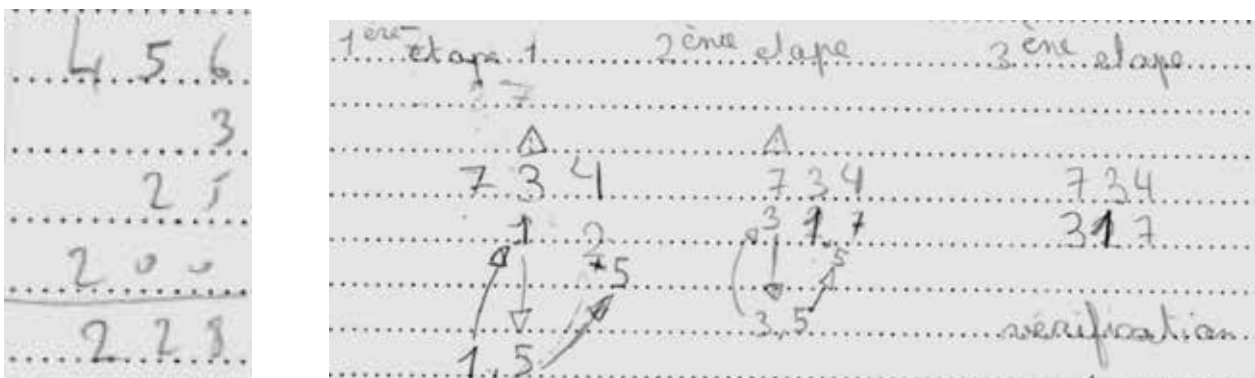 4 5 6
3
2 5
2 0 0
2 2 8
1ère étape 1 2ème etape 3ème etape
7
7 3 4 7 3 4 7 3 4
1 2 3 1 7 3 1 7
5 5
1,5 3,5 vérification